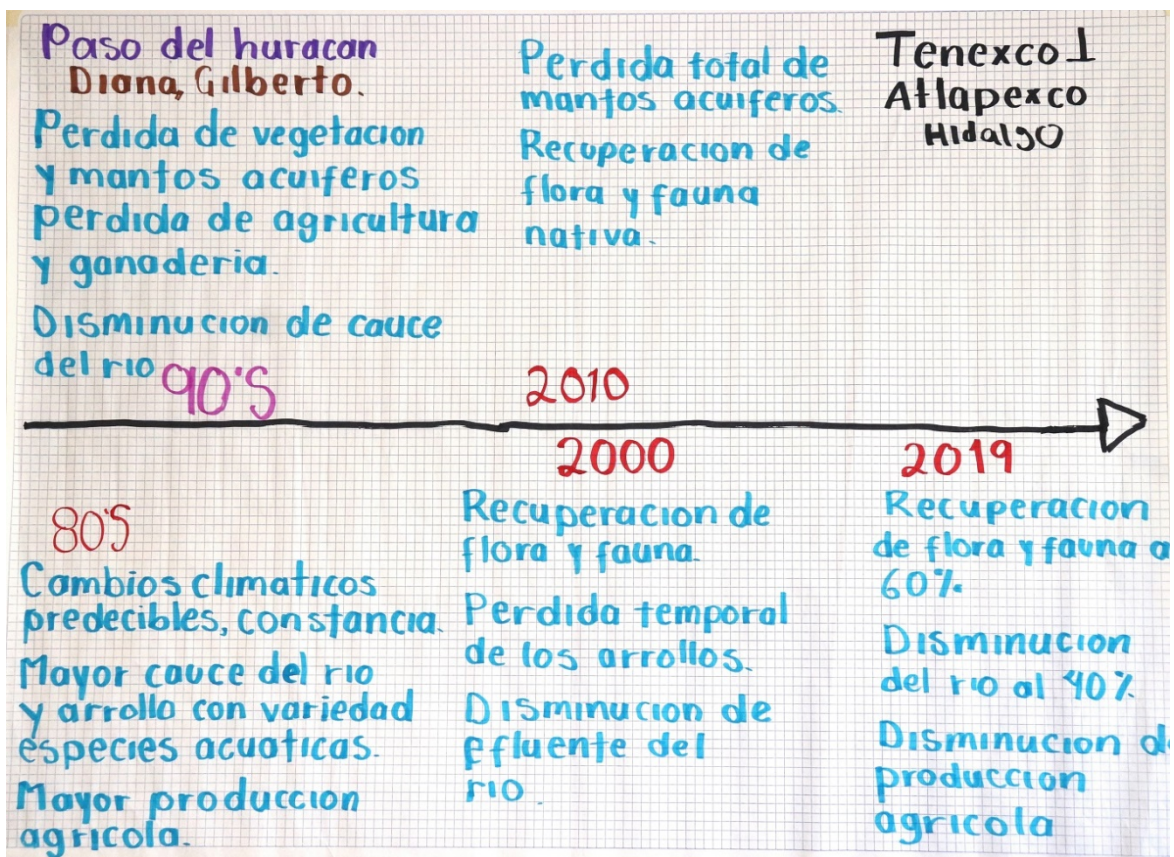 Paso del huracan
Diana, Gilberto.
Perdida de vegetacion
y mantos acuiferos
perdida de agricultura
y ganaderia.
Disminucion de cauce
del rio
90'S
Perdida total de
mantos acuiferos.
Recuperacion de
flora y fauna
nativa.
2010
Tenexco I
Atlapexco
Hidalgo
80'S
Cambios climaticos
predecibles, constancia.
Mayor cauce del rio
y arrollo con variedad
especies acuaticas.
Mayor produccion
agricola.
2000
Recuperacion de
flora y fauna.
Perdida temporal
de los arrollos.
Disminucion de
efluente del
rio.
2019
Recuperacion
de flora y fauna a
60%.
Disminucion
del rio al 40%
Disminucion de
produccion
agricola